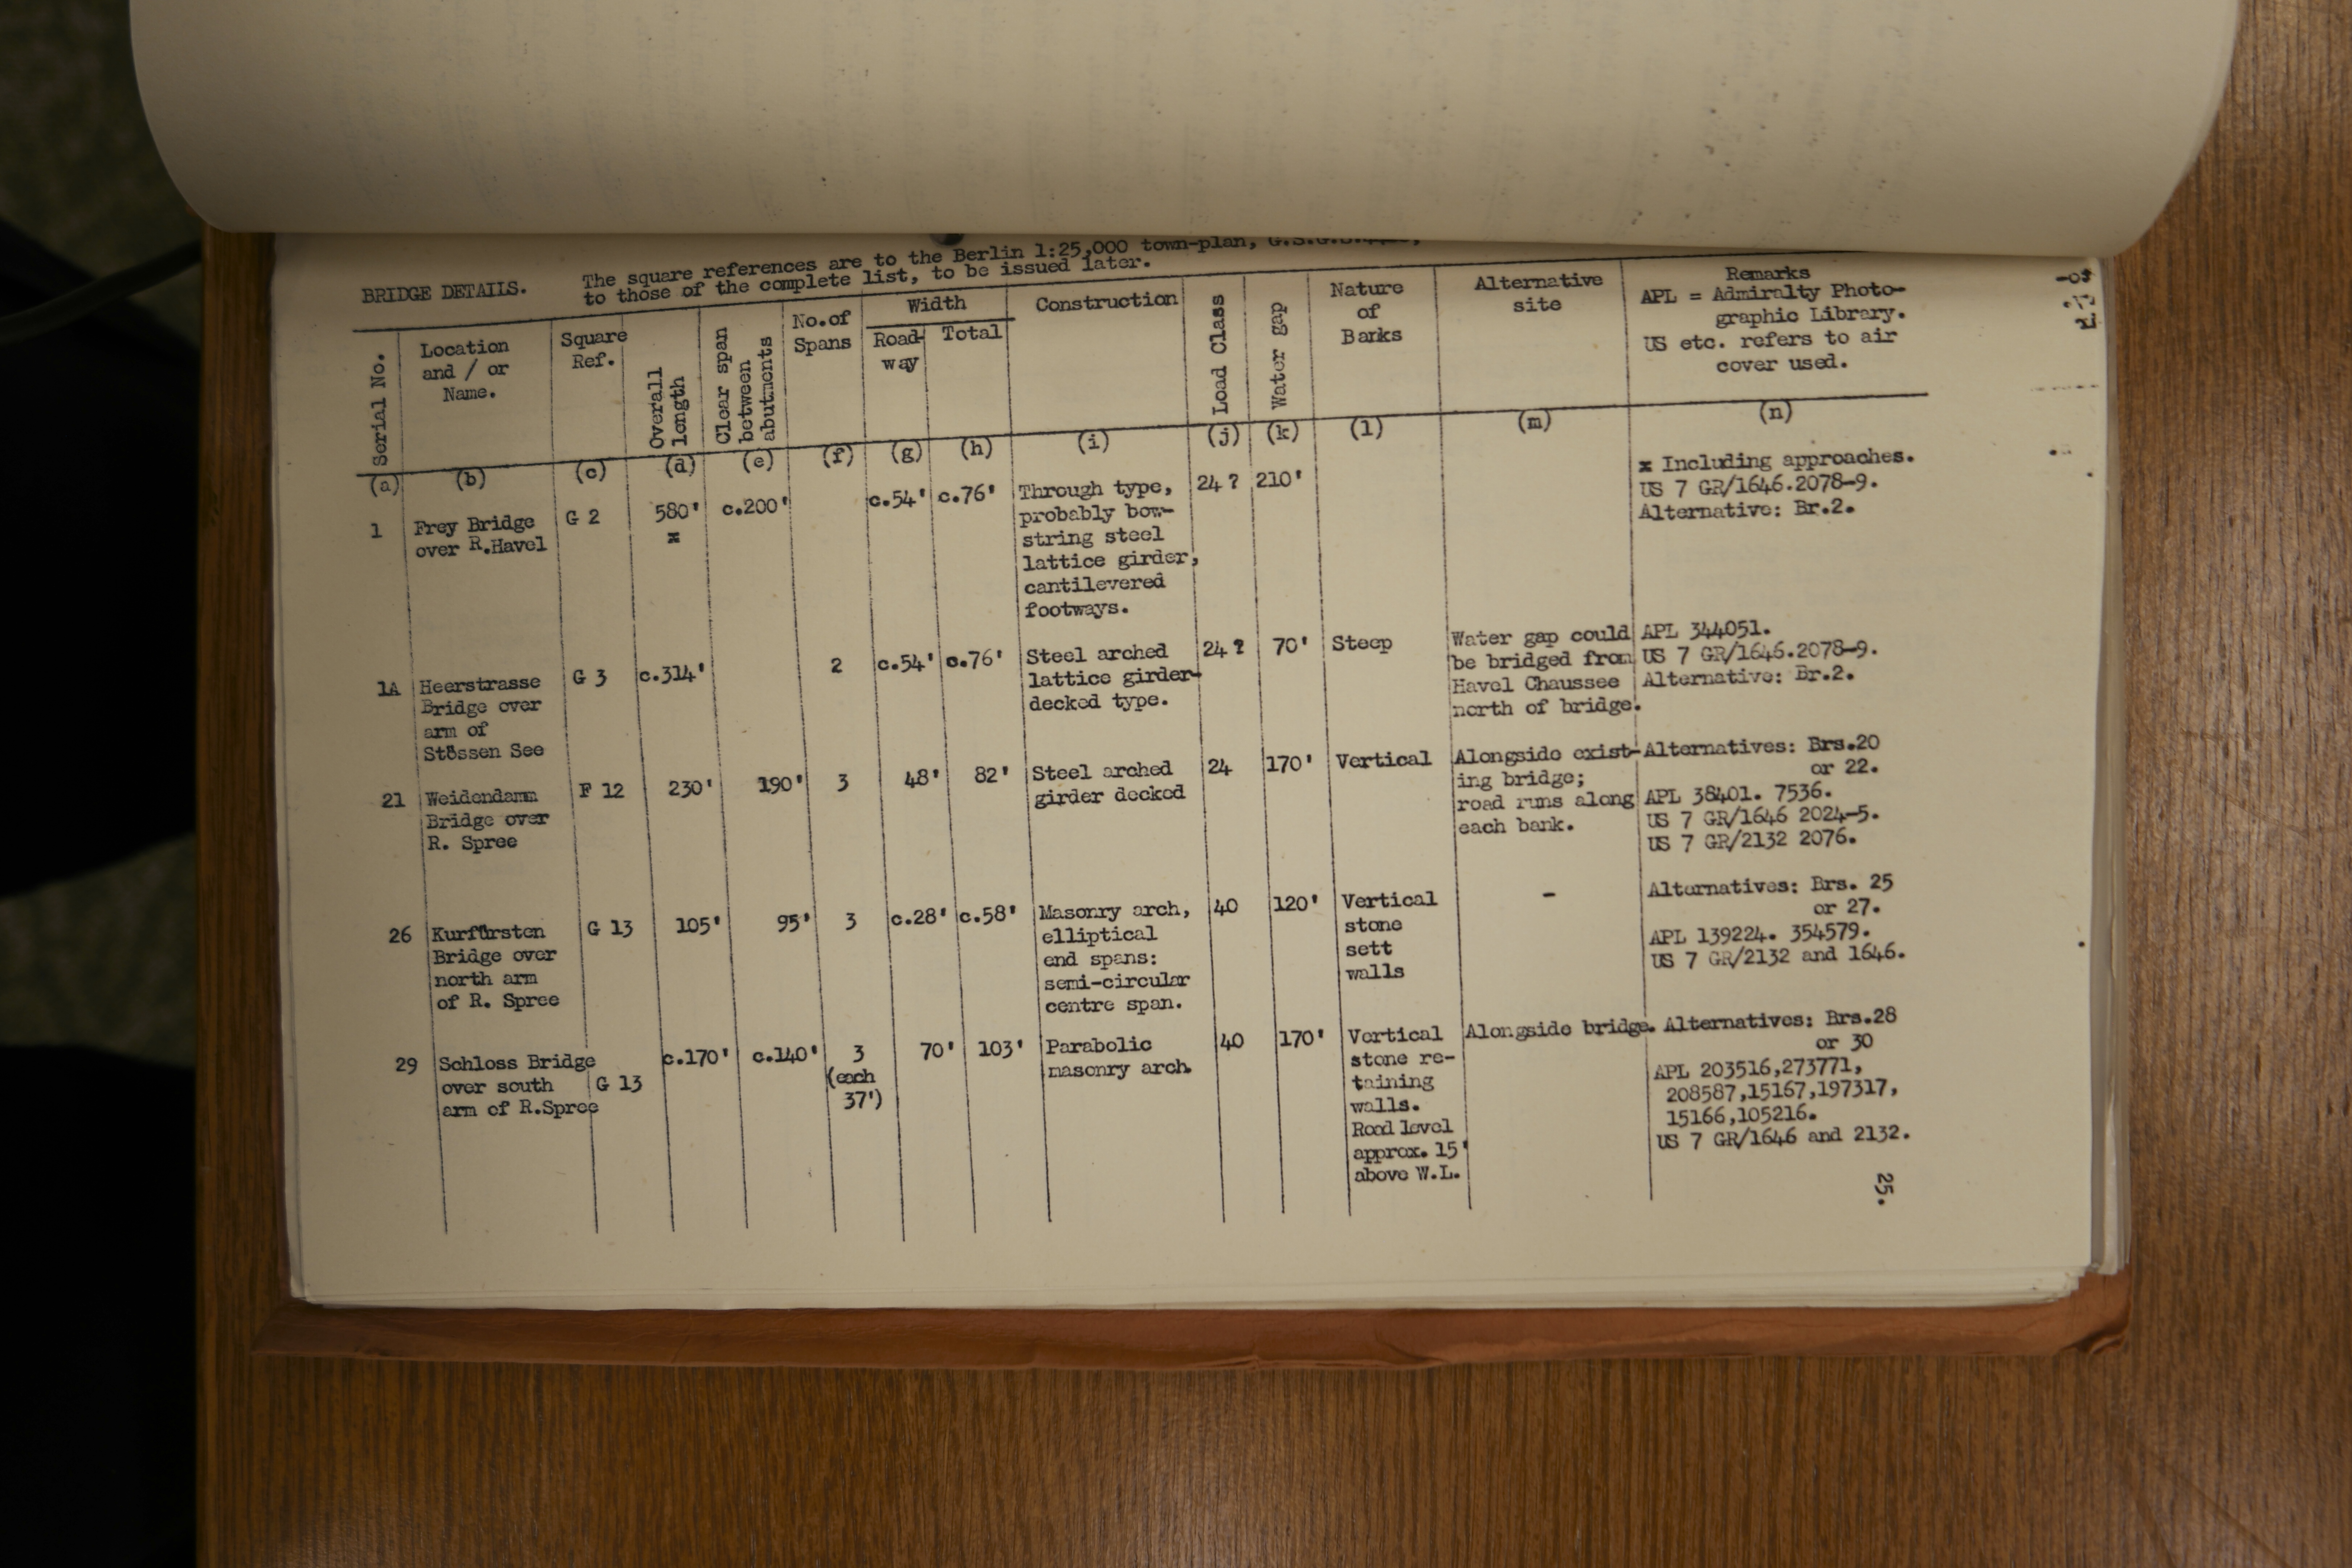 BRIDGE DETAILS. The square references are to the Berlin 1:25,000 town-plan,
to those of the complete list, to be issued later.
Serial No.
Location
and / or
Name.
Square
Ref.
Overall
length
Clear span
between
abutments
No.of
Spans
Width
Road-
way
Total
Construction
Load Class
Water gap
Nature
of
Banks
Alternative
site
Remarks
APL = Admiralty Photo-
graphic Library.
US etc. refers to air
cover used.
(a) (b) (c) (d) (e) (f) (g) (h) (i) (j) (k) (l) (m) (n)
1
Frey Bridge
over R.Havel
G 2
580'
x
c.200'
c.54'
c.76'
Through type,
probably bow-
string steel
lattice girder,
cantilevered
footways.
24 ?
210'
x Including approaches.
US 7 GR/1646.2078-9.
Alternative: Br.2.
1A
Heerstrasse
Bridge over
arm of
Stössen See
G 3
c.314'
2
c.54'
c.76'
Steel arched
lattice girder-
decked type.
24 ?
70'
Steep
Water gap could
be bridged from
Havel Chaussee
north of bridge.
APL 344051.
US 7 GR/1646.2078-9.
Alternative: Br.2.
21
Weidendamm
Bridge over
R. Spree
F 12
230'
190'
3
48'
82'
Steel arched
girder decked
24
170'
Vertical
Alongside exist-
ing bridge;
road runs along
each bank.
Alternatives: Brs.20
or 22.
APL 38401. 7536.
US 7 GR/1646 2024-5.
US 7 GR/2132 2076.
26
Kurfürsten
Bridge over
north arm
of R. Spree
G 13
105'
95'
3
c.28'
c.58'
Masonry arch,
elliptical
end spans:
semi-circular
centre span.
40
120'
Vertical
stone
sett
walls
-
Alternatives: Brs. 25
or 27.
APL 139224. 354579.
US 7 GR/2132 and 1646.
29
Schloss Bridge
over south
arm of R.Spree
G 13
c.170'
c.140'
3
(each
37')
70'
103'
Parabolic
masonry arch.
40
170'
Vertical
stone re-
taining
walls.
Road level
approx. 15'
above W.L.
Alongside bridge.
Alternatives: Brs.28
or 30
APL 203516,273771,
208587,15167,197317,
15166,105216.
US 7 GR/1646 and 2132.
25.